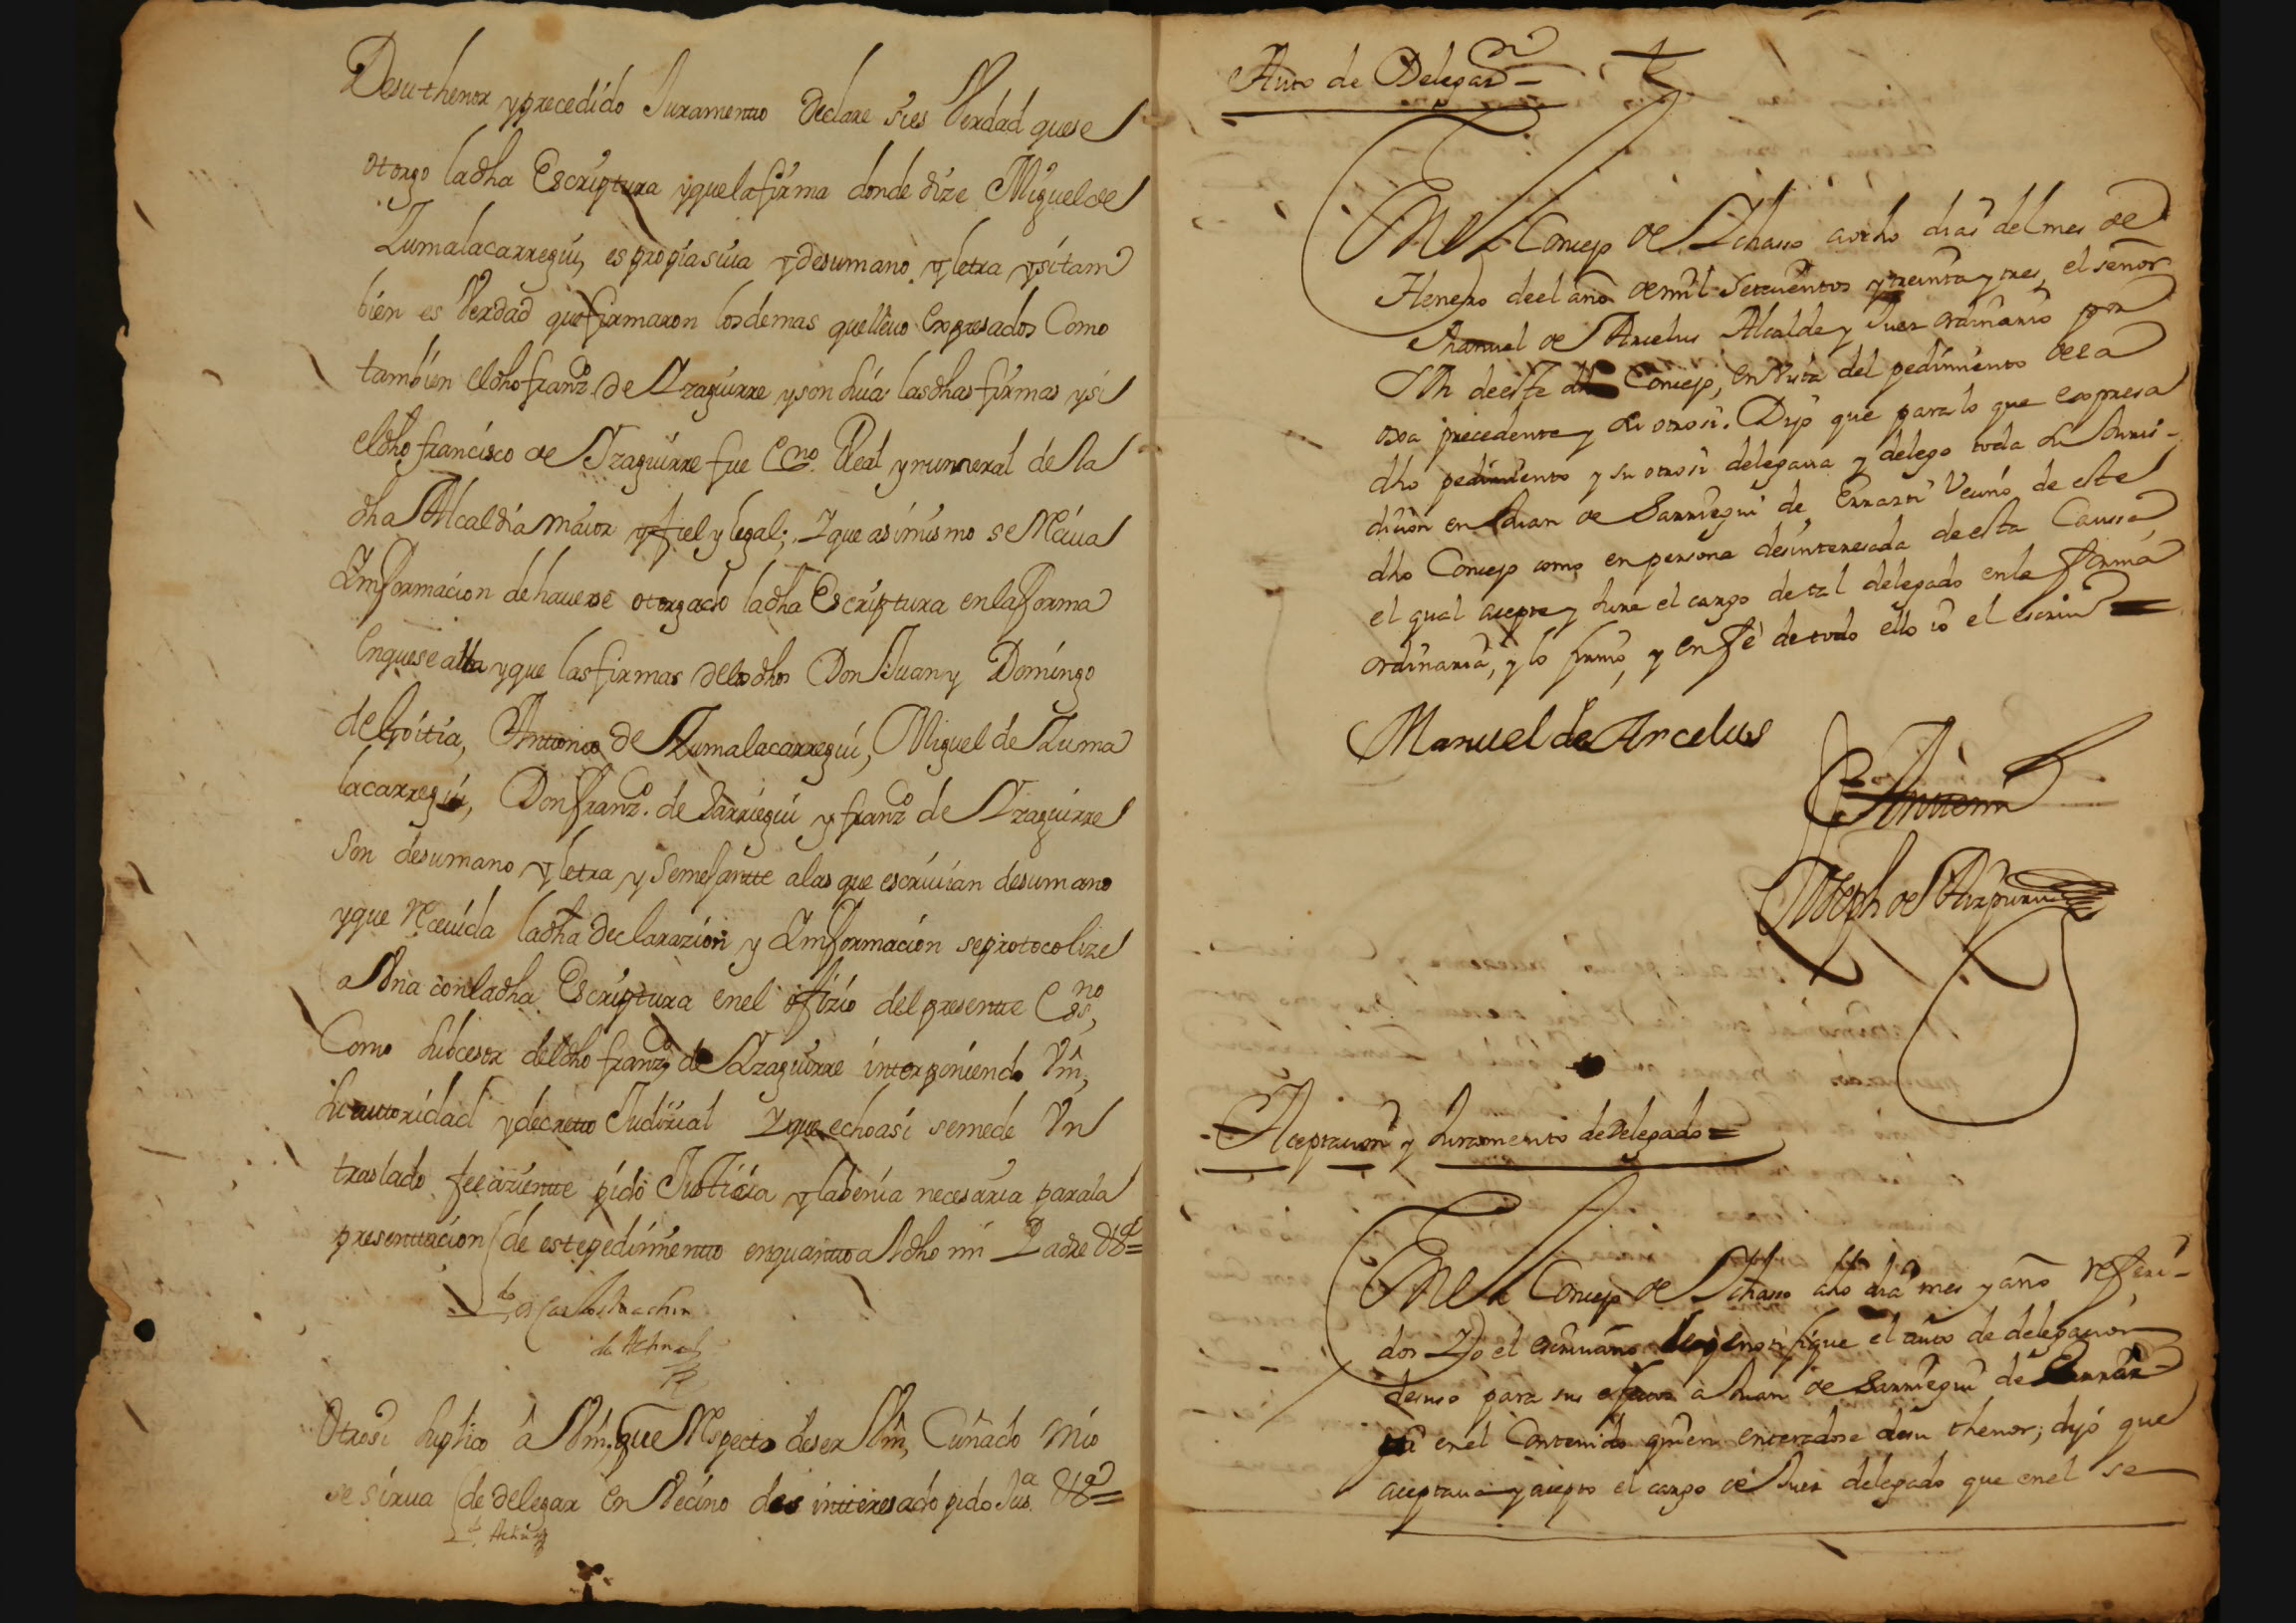 Desuthenor yprecedido Juramento Declare sies Verdad quese
otorgo ladha Escriptura yquelafirma donde dize Miguelde
Zumalacarregui, espropiasuia ydesumano, yletra ysitam
bien es Verdad quefirmaron losdemas quelleuo Expresados Como
tambien eldhofranzco. de Yzaguirre yson suias lasdhasfirmas ysi
eldho francisco de Yzaguirre fue Esno. Real ynumeral de la
dha Alcaldia maior yfiel y legal; Y que asimismo se Reciua
Ymformacion dehauerse otorgado ladha Escriptura enlaforma
Enquese alla yque lasfirmas delosdhos Don Juan y Domingo
de Goitia, Antonio de Zumalacarregui, Miguel de Zuma
lacarregui, Donfranzco. de Sarriegui yfranzco de Yzaguirre
son desumano yletra y Semejantte alas que escriuian desumano
yque Receuida ladha declarazion y Ymformacion seprotocolize
a Vna conladha Escriptura enel ofizio del presentte Esno,
Como subcesor deldho franzco de Yzaguirre interponiendo Vm,
suauttoridad ydecretto Judizial Yque echoasi semede Vn
traslado feeazientte pido Justicia ylabenia necesaria parala
presenttacion de estepedimientto enquanttoa Vdho mi Padre Va=
Otrosi suplico â Vm, que Respecto deser Vm, Cuñado mio
se sirua de delegar en Vecino des intteresado pido Jusa. Va=
Auto de Delegaon=
En el Concejo de Ychaso aocho dias delmes de
Henero deel año demil Setecientos ytreinta y tres, el señor
Manuel de Arcelus Alcalde y Juez ordinario por
SM deeste dho Concejo, en Vista del pedimiento dela
oxa precedente y su otrosi. Dijo que para lo que expresa
dho pedimiento y su otrosi delegaua y delego toda su Juris-
dicion en Juan de Sarriegui de Errarti Vecino de este
dho Concejo como en persona desinteresada de esta Caussa
el qual acepte y Jure el cargo de tal delegado en la forma
ordinaria, y lo firmo, y en fè de todo ello io el escriuno=
Manuel de Arcelus
Ante mi
Joseph de Aizpuru
Aceptacion y Juramento de Delegado=
En el Concejo de Ychaso dho dia mes y año referi-
dos Yo el escriuano ley y notifique el auto de delegacion
deuso para sus efectos à Juan de Sarriegui de Errar-
ti enel Contenido quien enteradose desu thenor; dijo que
aceptaua y acepto el cargo de Juez delegado que enel se